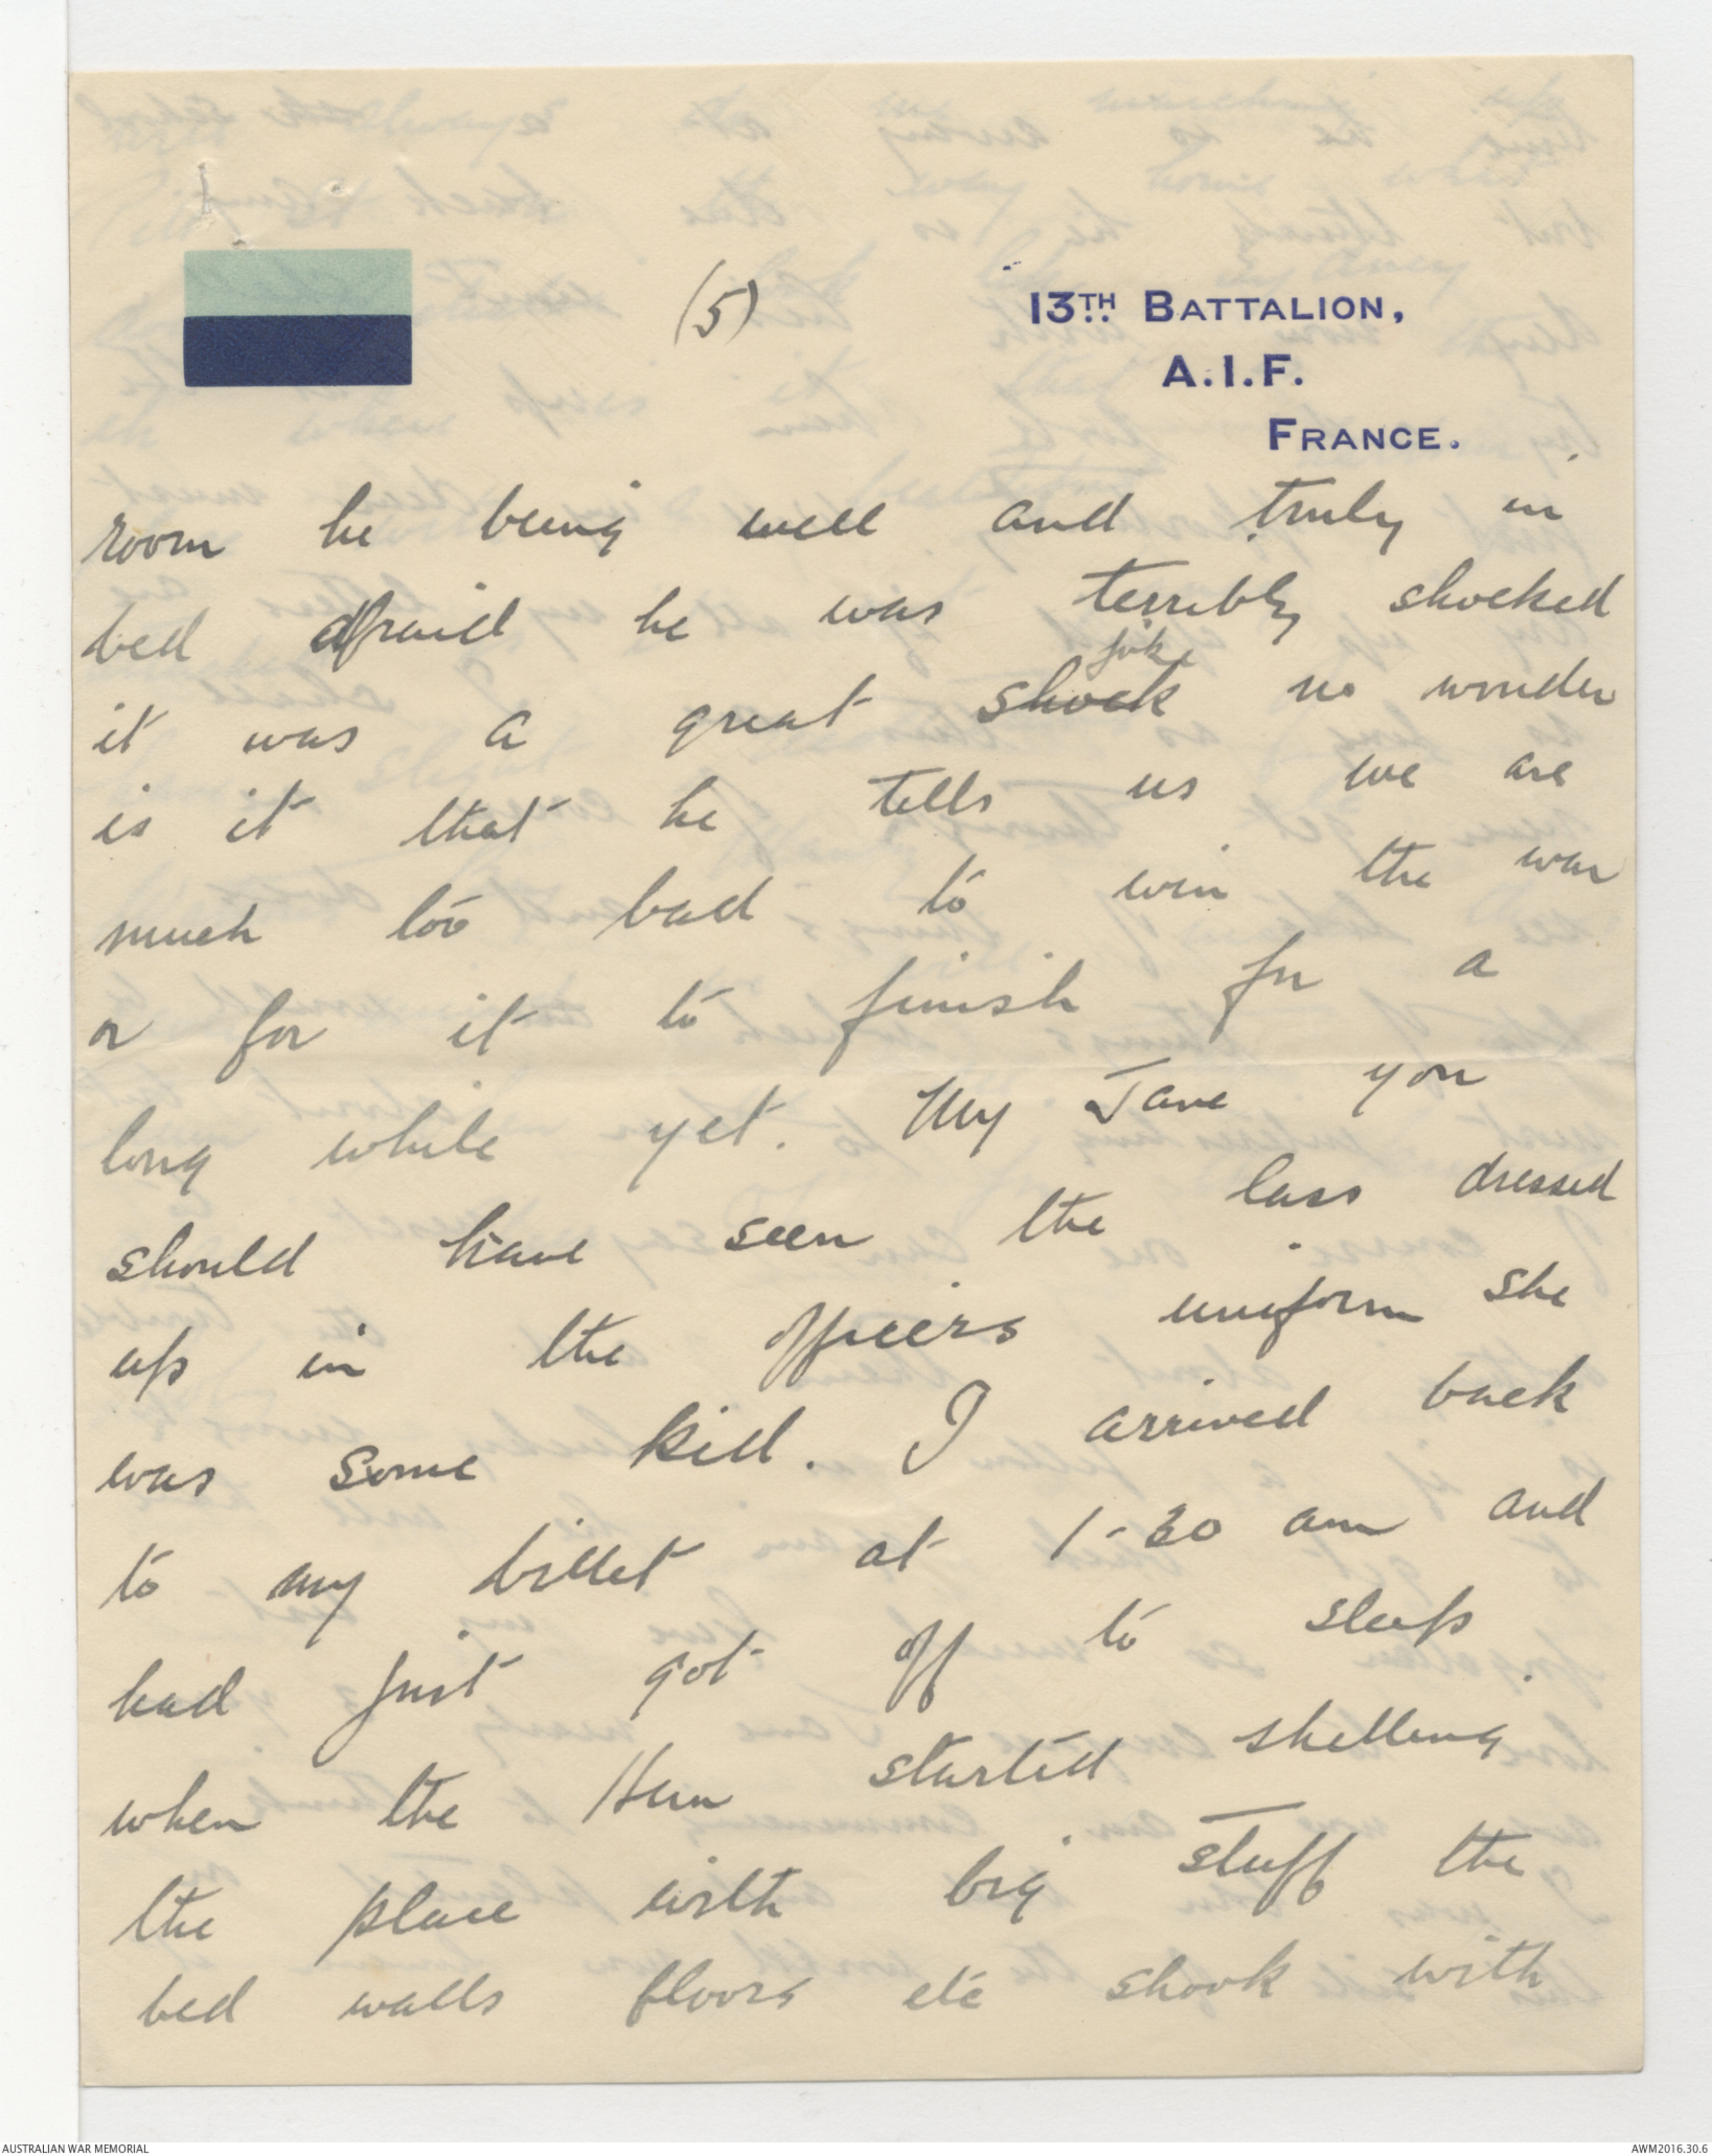 (5)
13TH BATTALION,
A.I.F.
FRANCE.
room he being well and truly in
bed afraid he was terribly shocked
joke
it was a great shock no wonder
is it that he tells us we are
much too bad to win the war
or for it to finish for a
long while yet. My Jane you
should have seen the lass dressed
up in the officers uniform she
was some kid. I arrived back
to my billet at 1-30 am and
had just got off to sleep
when the Hun started shelling
the place with big stuff the
bed walls floors etc shook with
AUSTRALIAN WAR MEMORIAL
AWM2016.30.6